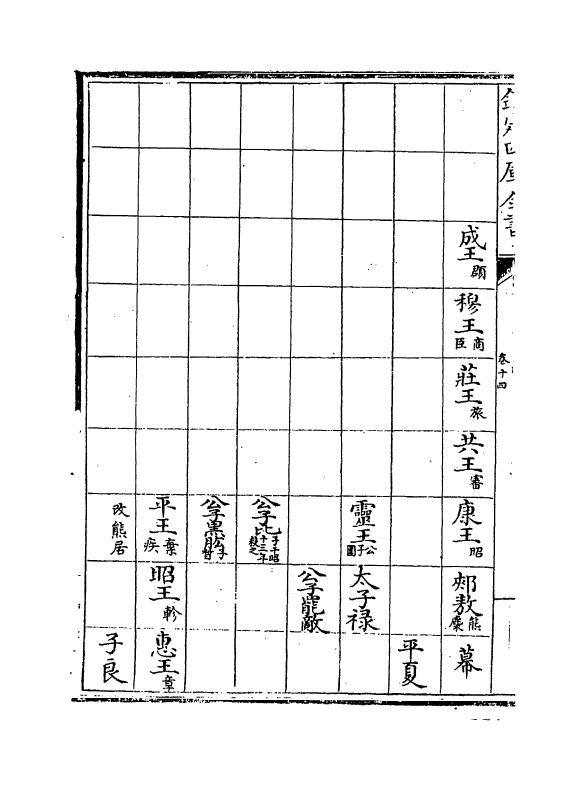 欽定四庫全書
卷十四
成王頵
穆王商臣
莊王旅
共王審
康王昭
郟敖熊麇
幕
平夏
靈王公子圍
太子禄
公子罷敵
公子比子干昭十三年殺之
公子黑肱子晳
平王棄疾
昭王軫
惠王章
改熊居
子良